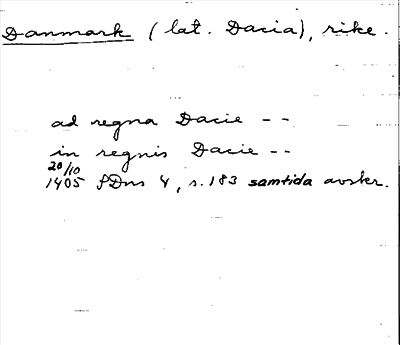 Danmark (lat. Dacia), rike.
ad regna Dacie --
in regnis Dacie --
20/10
1405 SDns 4, s. 183 samtida avskr.